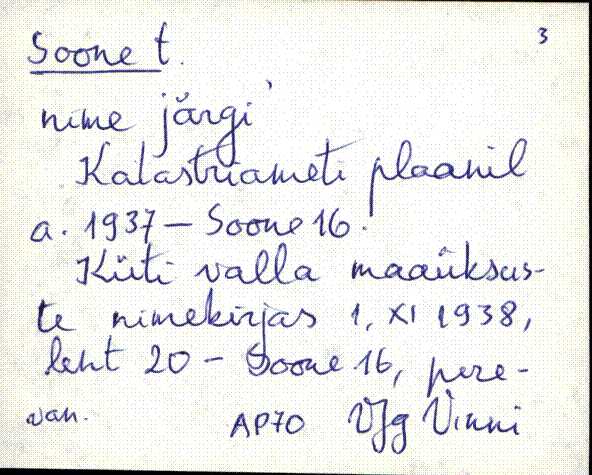 Soone t. 3
nime järgi
Katastriameti plaanil
a. 1937 – Soone 16.
Küti valla maaüksus-
te nimekirjas 1. XI 1938,
leht 20 – Soone 16, pere-
van. AP70 VJg Vinni